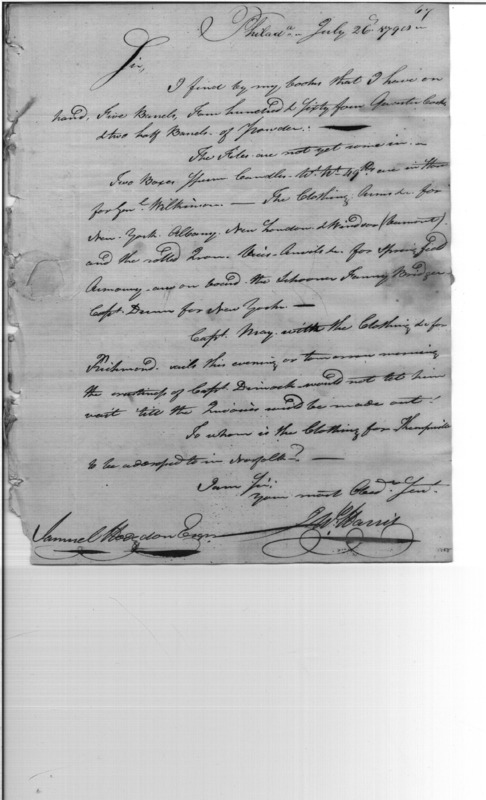 67
Philada. July 26th 179
Sir,
I find by my books that I have on
hand, Five Barrels, Four hundred & Sixty four Quarter Casks
& two half Barrels of Powder. —
The Files are not yet come in —
Two Boxes Sperm Candles Wt. 49 lbs are in
for Genl. Wilkinson — The Clothing Arms &c for
New-York Albany New London & Windsor (Vermont)
and the rolled Iron Vices Anvils &c for Springfield
Armoury are on board the Schooner Fanny
Capt. for New York. —
Capt. May with the Clothing &c for
Richmond sails this evening or tomorrow morning
the of Capt. would not let him
wait till the Invoices could be made out.
To whom is the Clothing for
to be addressed to in Norfolk? —
I am Sir,
your most Obedt. Servt.
Jno. Harris
Samuel Hodgdon Esqr